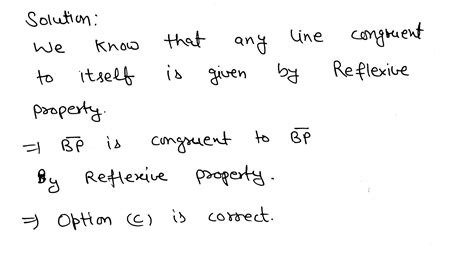 Solution:
We know that any line congruent
to itself is given by Reflexive
property.
⇒ B̅P̅ is congruent to B̅P̅
By Reflexive property.
⇒ Option (C) is correct.